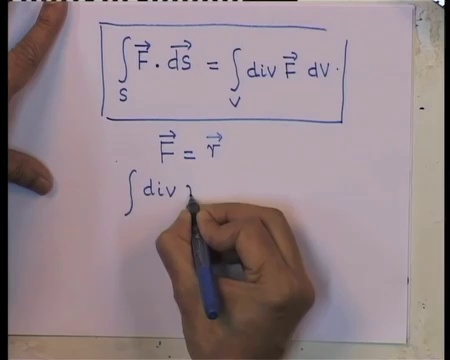 ∫_S F⃗ · d⃗S = ∫_V div F⃗ dV.
F⃗ = r⃗
∫ div